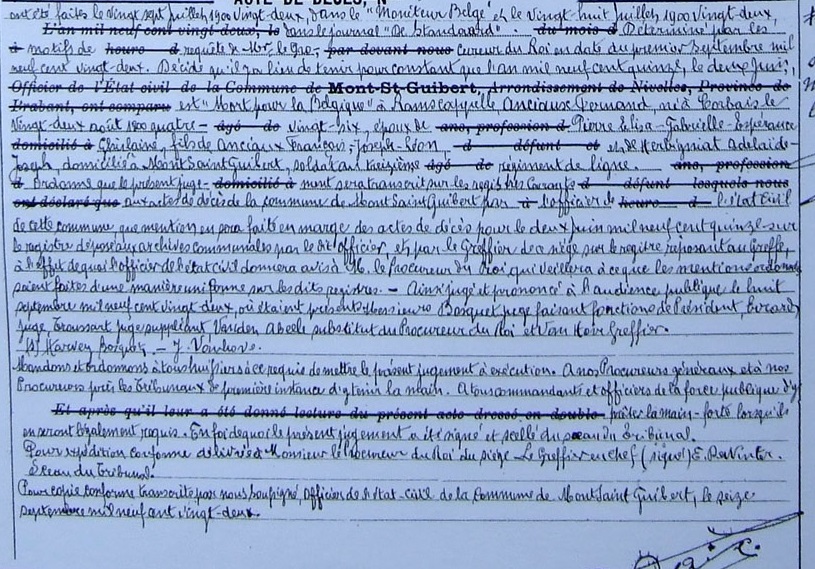 ACTE DE DÉCÈS, N
ont été faites le vingt sept juillet 1900 vingt-deux, dans le "Moniteur Belge" et le vingt huit juillet 1900 vingt-deux,
L'an mil neuf cent vingt-deux, le dans le journal "De Standaard". du mois d Déterminé par les
à motifs de heure d requête de Mr. le Gre- par devant nous cureur du Roi en date du premier septembre mil
neuf cent vingt-deux. Décide qu'il y a lieu de tenir pour constant que l'an mil neuf cent quinze, le deux juin,
Officier de l'État civil de la Commune de Mont-St-Guibert, Arrondissement de Nivelles, Province de
Brabant, ont comparu est "Mort pour la Belgique" à Ramscappelle Anciaux Fernand, né à Corbais le
vingt-deux août 1800 quatre- âgé de vingt-six, époux de ans, profession d Pierre Elisa-Gabrielle-Espérance
domicilié à Ghilaine, fils de Anciaux François-Joseph-Léon, d défunt et et de Herbigniat Adelaïde-
Joseph, domicilié à Mont Saint Guibert, soldat au treizième âgé de régiment de ligne. ans, profession
d Ordonne que le présent juge- domicilié à ment sera transcrit sur les registres courants d défunt lesquels nous
ont déclaré que aux actes de décès de la commune de Mont Saint Guibert par à l'officier de heure d l'état civil
de cette commune que mention en sera faite en marge des actes de décès pour le deux juin mil neuf cent quinze sur
le registre déposé aux archives communales par le dit officier, et par le Greffier de ce siège sur le registre reposant au Greffe,
à l'effet de quoi l'officier de l'état civil donnera avis à M. le Procureur du Roi, qui veillera à ce que les mentions ordonnées
soient faites d'une manière uniforme sur les dits registres. - Ainsi jugé et prononcé à l'audience publique le huit
septembre mil neuf cent vingt-deux, où étaient présents Messieurs Bosquet juge faisant fonctions de Président, Evrard,
juge, Brassart juge suppléant Vanden Abeele substitut du Procureur du Roi et Van Hove Greffier.
(s) Harvey Bosquet, - J. Vanhove.
Mandons et ordonnons à tous huissiers à ce requis de mettre le présent jugement à exécution. A nos Procureurs généraux et à nos
Procureurs près les Tribunaux de première instance d'y tenir la main. A tous commandants et officiers de la force publique d'y
Et après qu'il leur a été donné lecture du présent acte dressé en double prêter la main-forte lorsqu'ils
en seront légalement requis. En foi de quoi le présent jugement a été signé et scellé du sceau du tribunal.
Pour expédition conforme délivrée à Monsieur le Procureur du Roi du siège Le Greffier en chef (signé) E. De Winter.
Sceau du Tribunal.
Pour copie conforme transcrite par nous soussigné, officier de l'état-civil de la Commune de Mont Saint Guibert, le seize
septembre mil neuf cent vingt-deux.